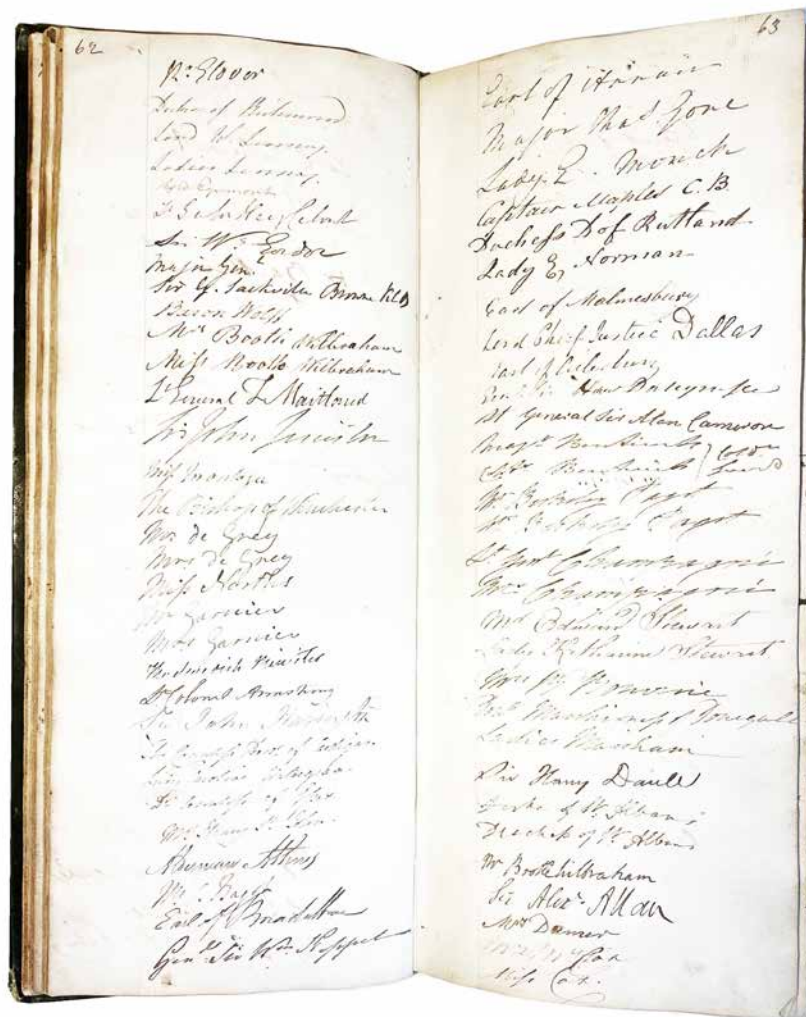 62
Mr. Glover
Duke of Richmond
Lord W. Lennox
Ladies Lennox
Sir Wm. Gordon
Major Gen.
Sir G. Sackville Browne KCB
Baron Wolff
Mrs Bootle Wilbraham
Miss Bootle Wilbraham
Lt General F Maitland
Sir John
Miss Montagu
The Bishop of Winchester
Mrs de Grey
Mrs de Grey
Miss North
Mr Garnier
Mrs Garnier
The Swedish Minister
Lt Colonel Armstrong
Sir John
of Cardigan
Countess of
Mrs St John
Alderman Atkins
Mr.
Earl of Breadalbane
Genl. Sir Wm Keppel
63
Earl of Arran
Major Thad Gore
Lady E. Monck
Captain Maples C.B.
Duchess D of Rutland
Lady E, Norman
Earl of Malmesbury
Lord Chief Justice Dallas
Earl of Ailesbury
Hew Dalrymple
Lt General Sir Alan Cameron
Bentinck
Chs. Bentinck
Mr. Berkeley Paget
Mrs Berkeley Paget
Lt Genl Champagné
Mrs Champagné
Mr Edward Stewart
Lady Katherine Stewart
Marchioness of Donegall
Ladies Marsham
Sir Harry
Duke of St Albans
Duchess of St Albans
Mr Bootle Wilbraham
Sir Alexr. Allan
Mrs Damer
Cox
Miss Cox.